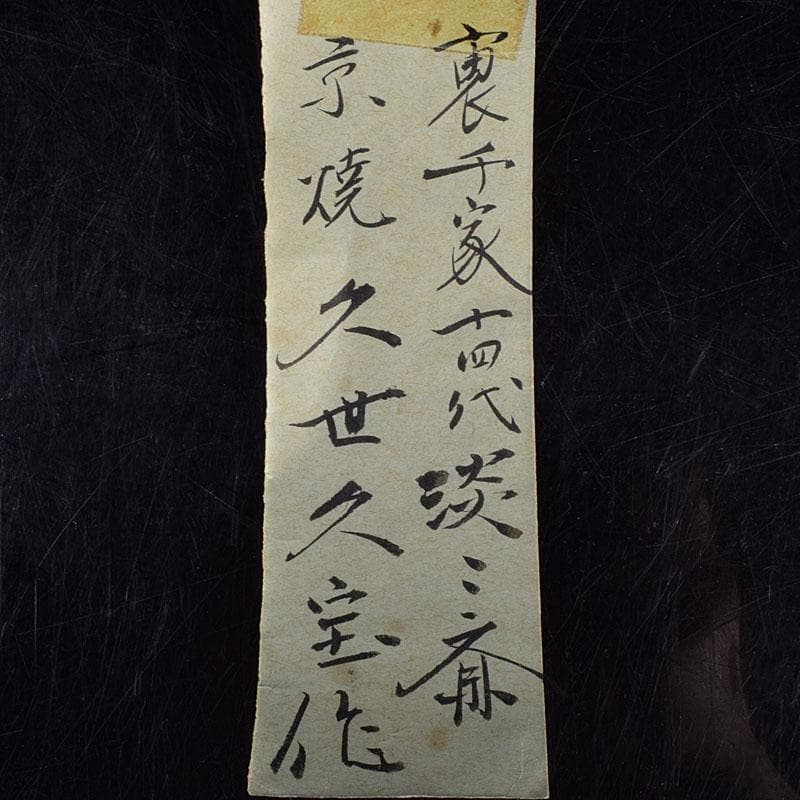 裏千家十四代淡々斎
京焼久世久宝作